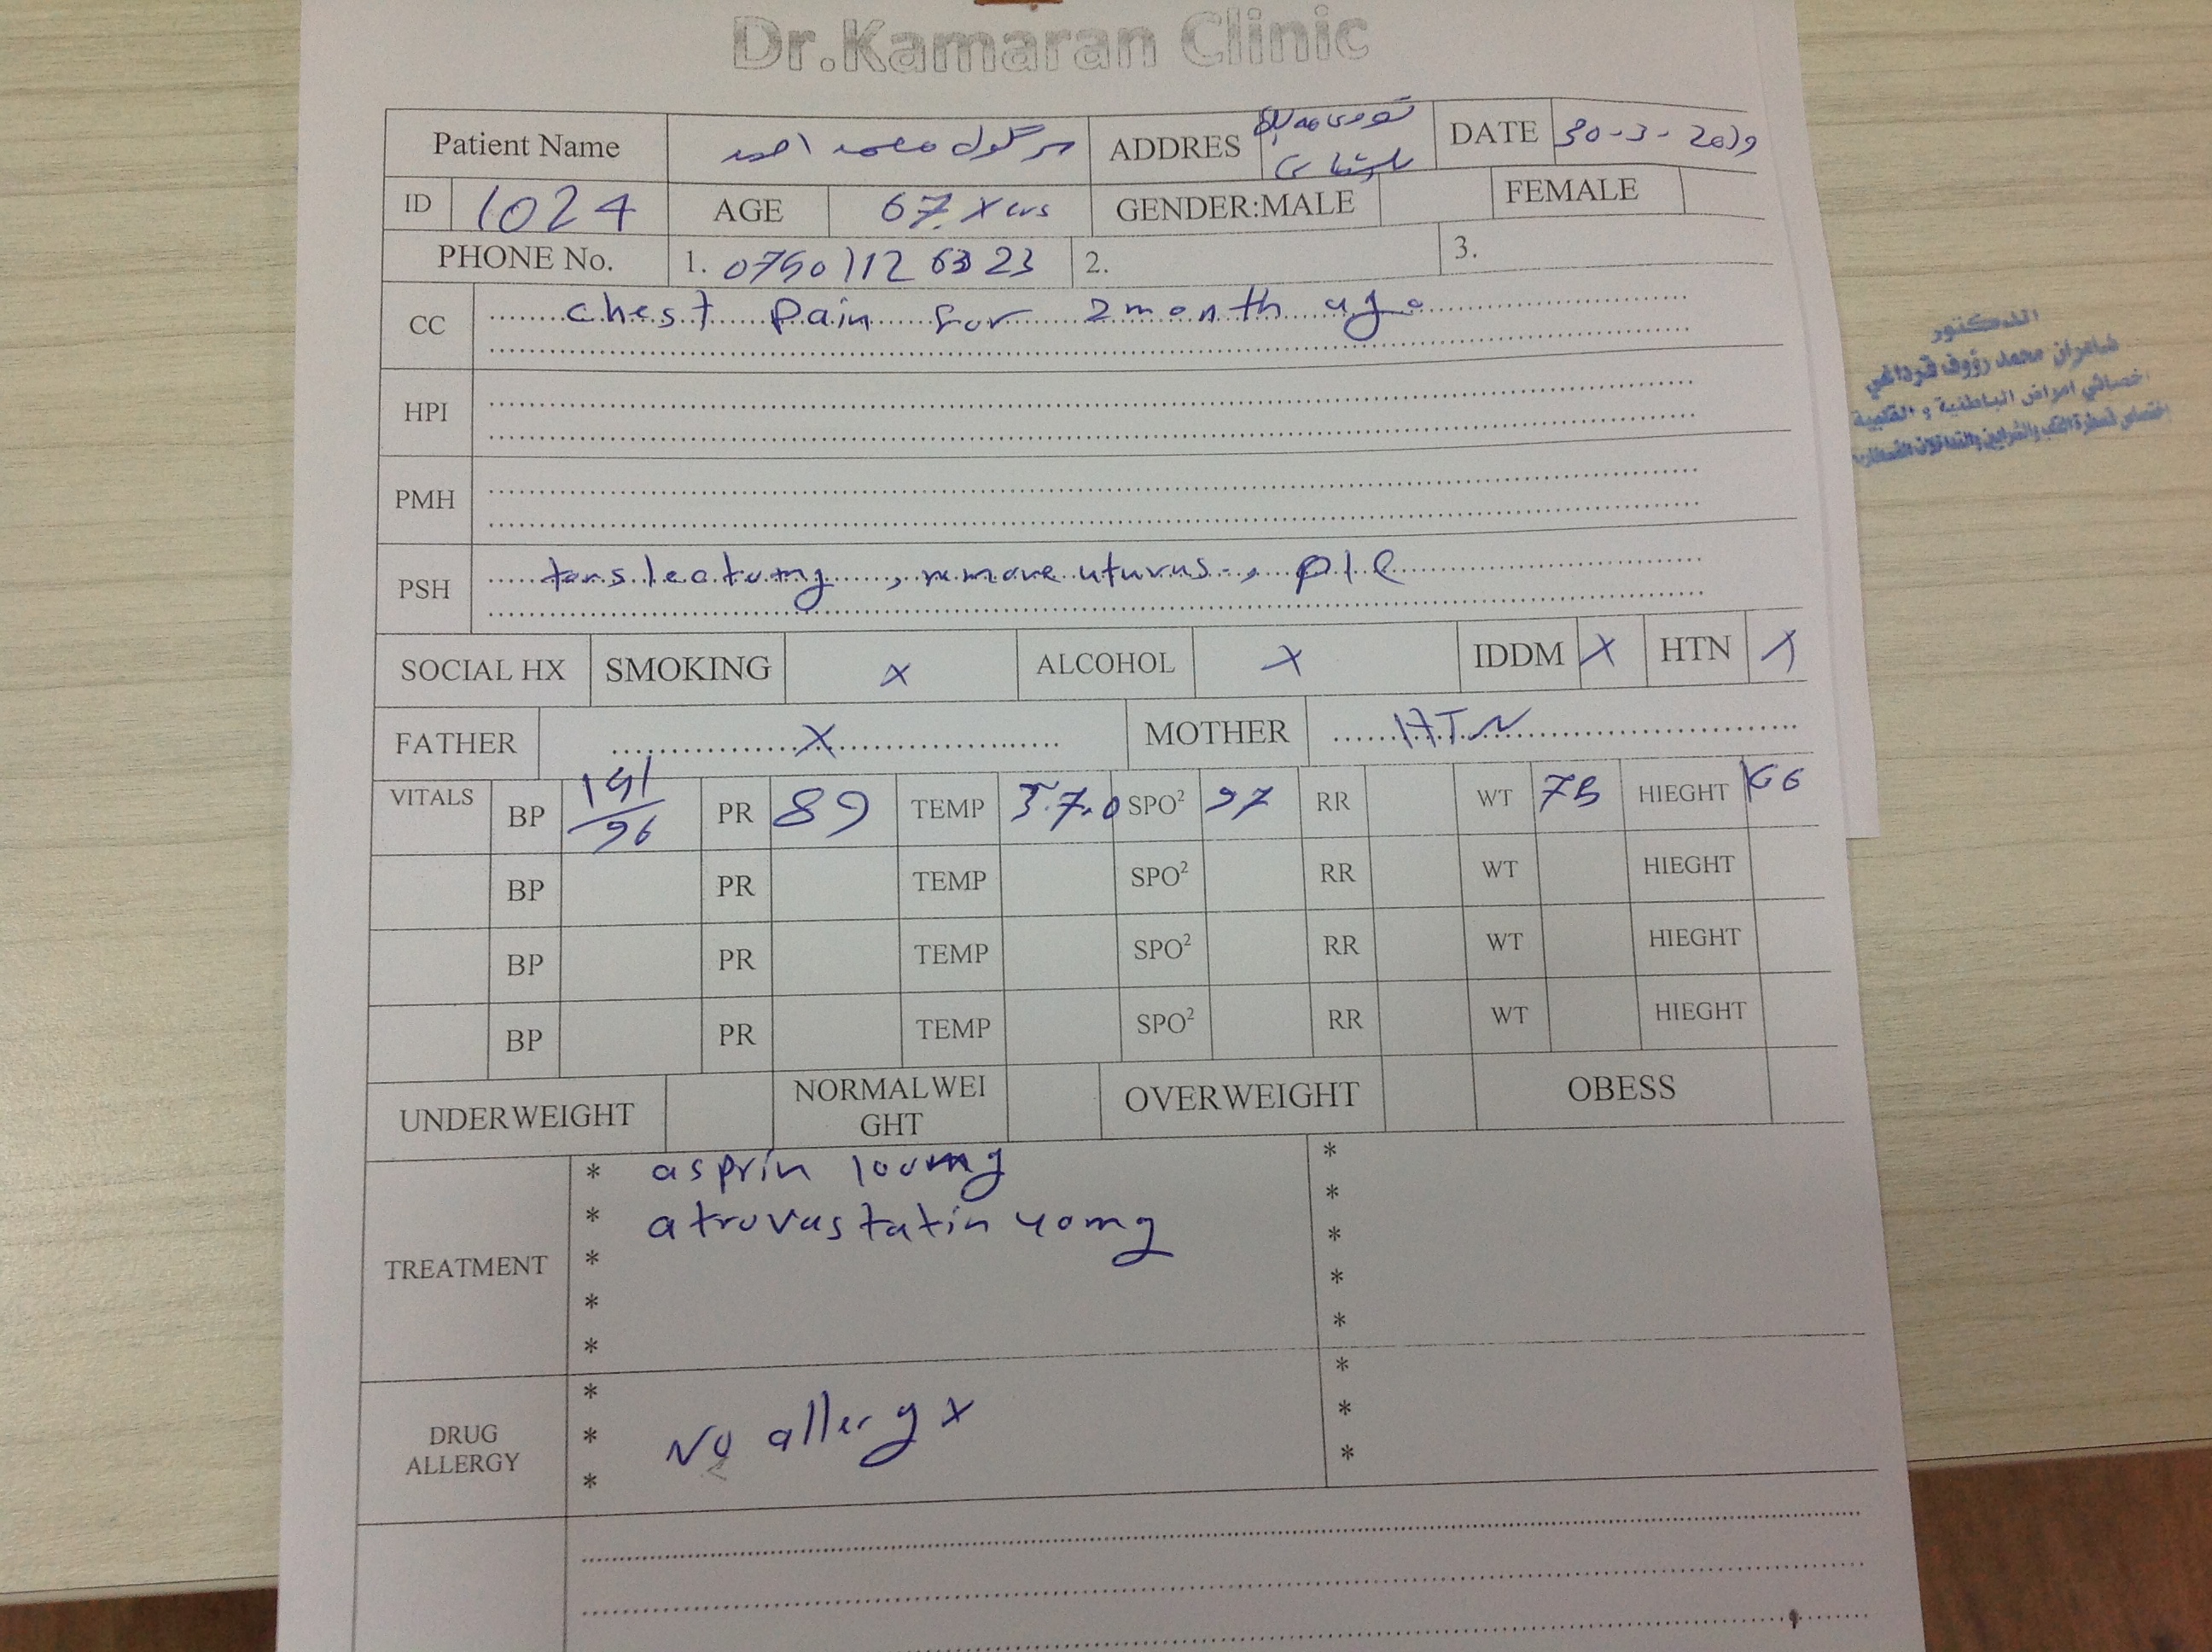 Dr.Kamaran Clinic
Patient Name محمد احمد ADDRES DATE 30-3-2019
ID 1024 AGE 67 Yers GENDER:MALE FEMALE
PHONE No. 1. 2. 3.
CC chest Pain for 2 month ago
HPI
PMH
PSH tonslectomy, remove uturus-, PLE
SOCIAL HX SMOKING x ALCOHOL x IDDM x HTN x
FATHER x MOTHER HTN
VITALS BP 141/96 PR 89 TEMP 37.0 SPO² 97 RR WT HIEGHT 166
BP PR TEMP SPO² RR WT HIEGHT
BP PR TEMP SPO² RR WT HIEGHT
BP PR TEMP SPO² RR WT HIEGHT
UNDERWEIGHT NORMALWEI
GHT OVERWEIGHT OBESS
TREATMENT
* asprin 100mg *
* atrovastatin 40mg *
* *
* *
* *
DRUG
ALLERGY
* *
* No allergy x *
* *
الدكتور
محمد رؤوف قرداغي
اخصائي امراض الباطنية و القلبية